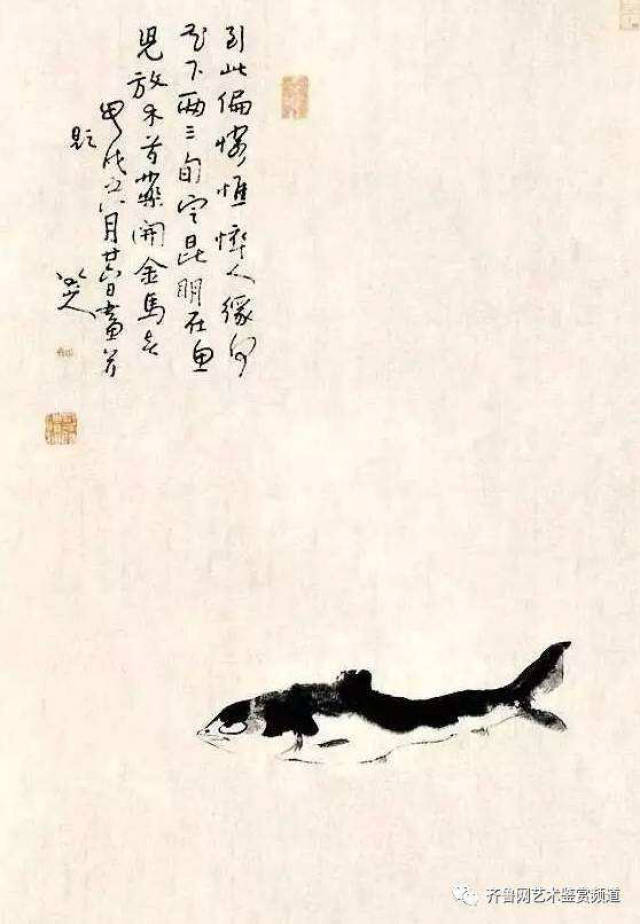 到此偏憐憔悴人緣何
花下兩三旬定昆明在魚
兒放木芍藥開金馬春
甲戌之八月廿六日畫并
題
八大山人
齐鲁网艺术鉴赏频道